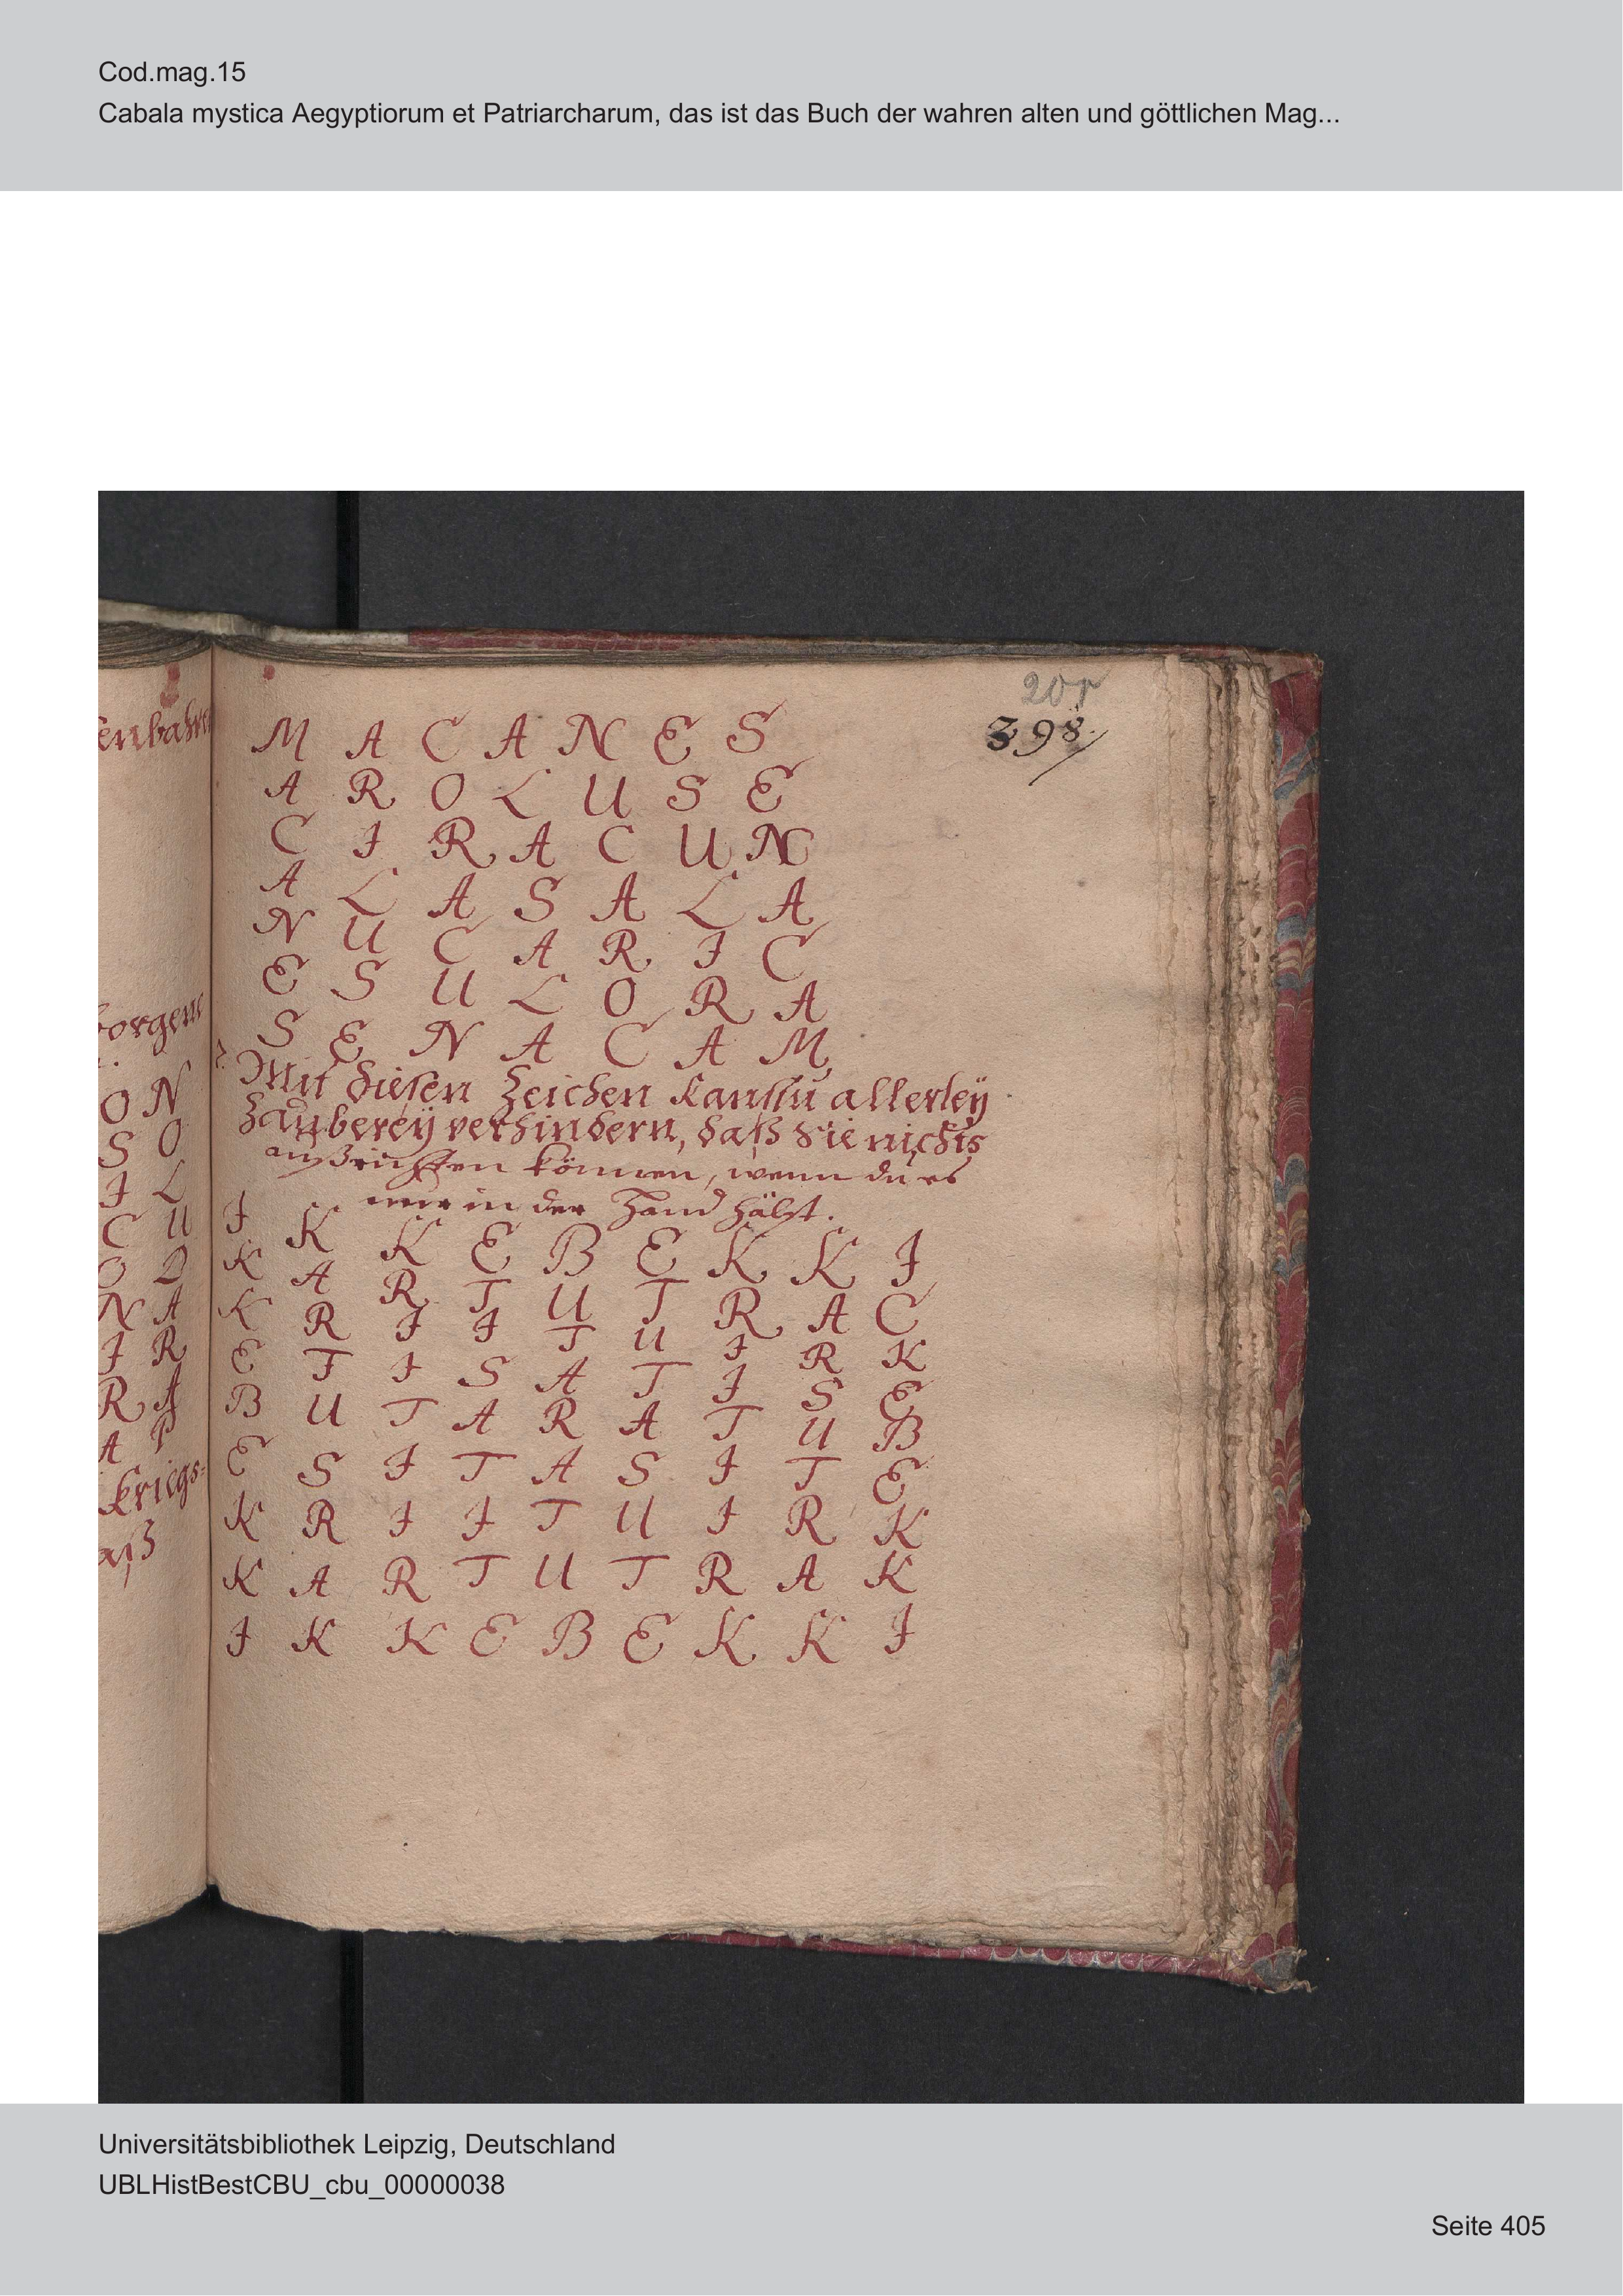 Cod.mag.15
Cabala mystica Aegyptiorum et Patriarcharum, das ist das Buch der wahren alten und göttlichen Mag...
398.
M A C A N E S
A R O L U S E
C I R A C U N
A L A S A L A
N U C A R I C
E S U L O R A
S E N A C A M
Mit diesen Zeichen kanstu allerleÿ
Zaubereÿ verhindern, daß sie nichts
außrichten können, wenn du es
nur in der Hand hälst.
I K K E B E K K I
K A R T U T R A C
K R I I T U I R K
E T I S A T I S E
B U T A R A T U B
E S I T A S I T E
K R I I T U I R K
K A R T U T R A K
I K K E B E K K I
enbahre
borgene
O N
S O
I L
C U
N A
I R
R A
A P
kriegs=
aß
Universitätsbibliothek Leipzig, Deutschland
UBLHistBestCBU_cbu_00000038
Seite 405